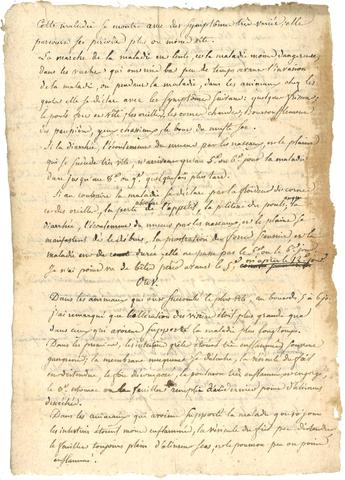 Cette maladie se montre avec des symptômes très variés; elle
parcourt ses périodes plus ou moins vite.
La marche de la maladie est lente, et la maladie moins dangereuse,
dans les vaches qui ont mis bas peu de temps avant l'invasion
de la maladie, ou pendant la maladie, dans les animaux chez
lesquels elle se déclare avec les symptômes suivants: quelques frissons,
le pouls fort et vite, les oreilles, les cornes chaudes, boursouflement
des paupières, yeux chassieux, le bout du muffle sec.
Si la diarrhée, l'écoulement du mucus par les naseaux, et la plainte
qui se succède très vite, n'arrivent qu'au 5e ou 6e jour la maladie
dure jusqu'au 8e ou 9e quelquefois plus tard.
Si au contraire la maladie se déclare par la froideur des cornes
et des oreilles, la perte absolue de l'appétit, la petitesse du pouls,
diarrhée, l'écoulement du mucus par les naseaux, et la plainte se
manifestent dès le début, la prostration des forces survient et la
maladie ne dure elle ne passe pas le 5e ou le 6e jour
Je n'ai point vu de bêtes périr avant le 5e
Ouv.
Dans les animaux qui ont succombé le plus vite, au bout de 5 à 6 jours
j'ai remarqué que l'altération des viscères était plus grande que
dans ceux qui avaient supporté la maladie plus longtemps.
Dans les premiers, les intestins grêles étaient très enflammés, souvent
gangrenés; la membrane muqueuse se détache, la vésicule du fiel
est distendue, le foie décomposé, le poumon très enflammé et engorgé,
le 3e estomac ou le feuillet remplis d'aliments
desséchés.
Dans les animaux qui avaient supporté la maladie jours
les intestins étaient moins enflammés, la vésicule du fiel peu distendue
le feuillet toujours plein d'aliments secs, et le poumon peu ou point
enflammé.